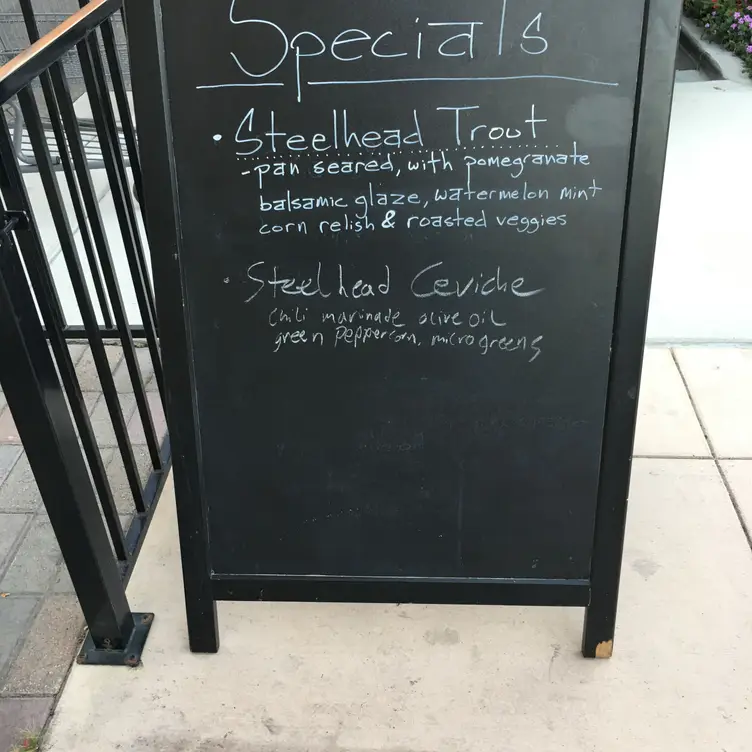 Specials
• Steelhead Trout
-pan seared, with pomegranate
balsamic glaze, watermelon mint
corn relish & roasted veggies
• Steelhead Ceviche
Chili marinade olive oil
green Peppercorn, microgreens